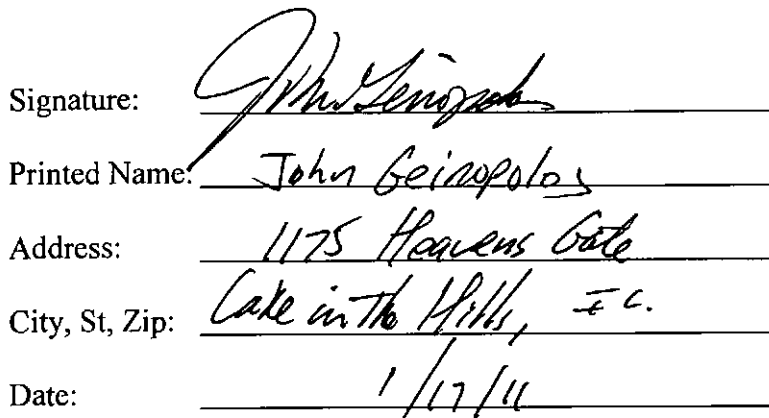 Signature: John Geinopolos
Printed Name: John Geinopolos
Address: 1175 Heavens Gate
City, St, Zip: Lake in The Hills, IL.
Date: 1/17/11